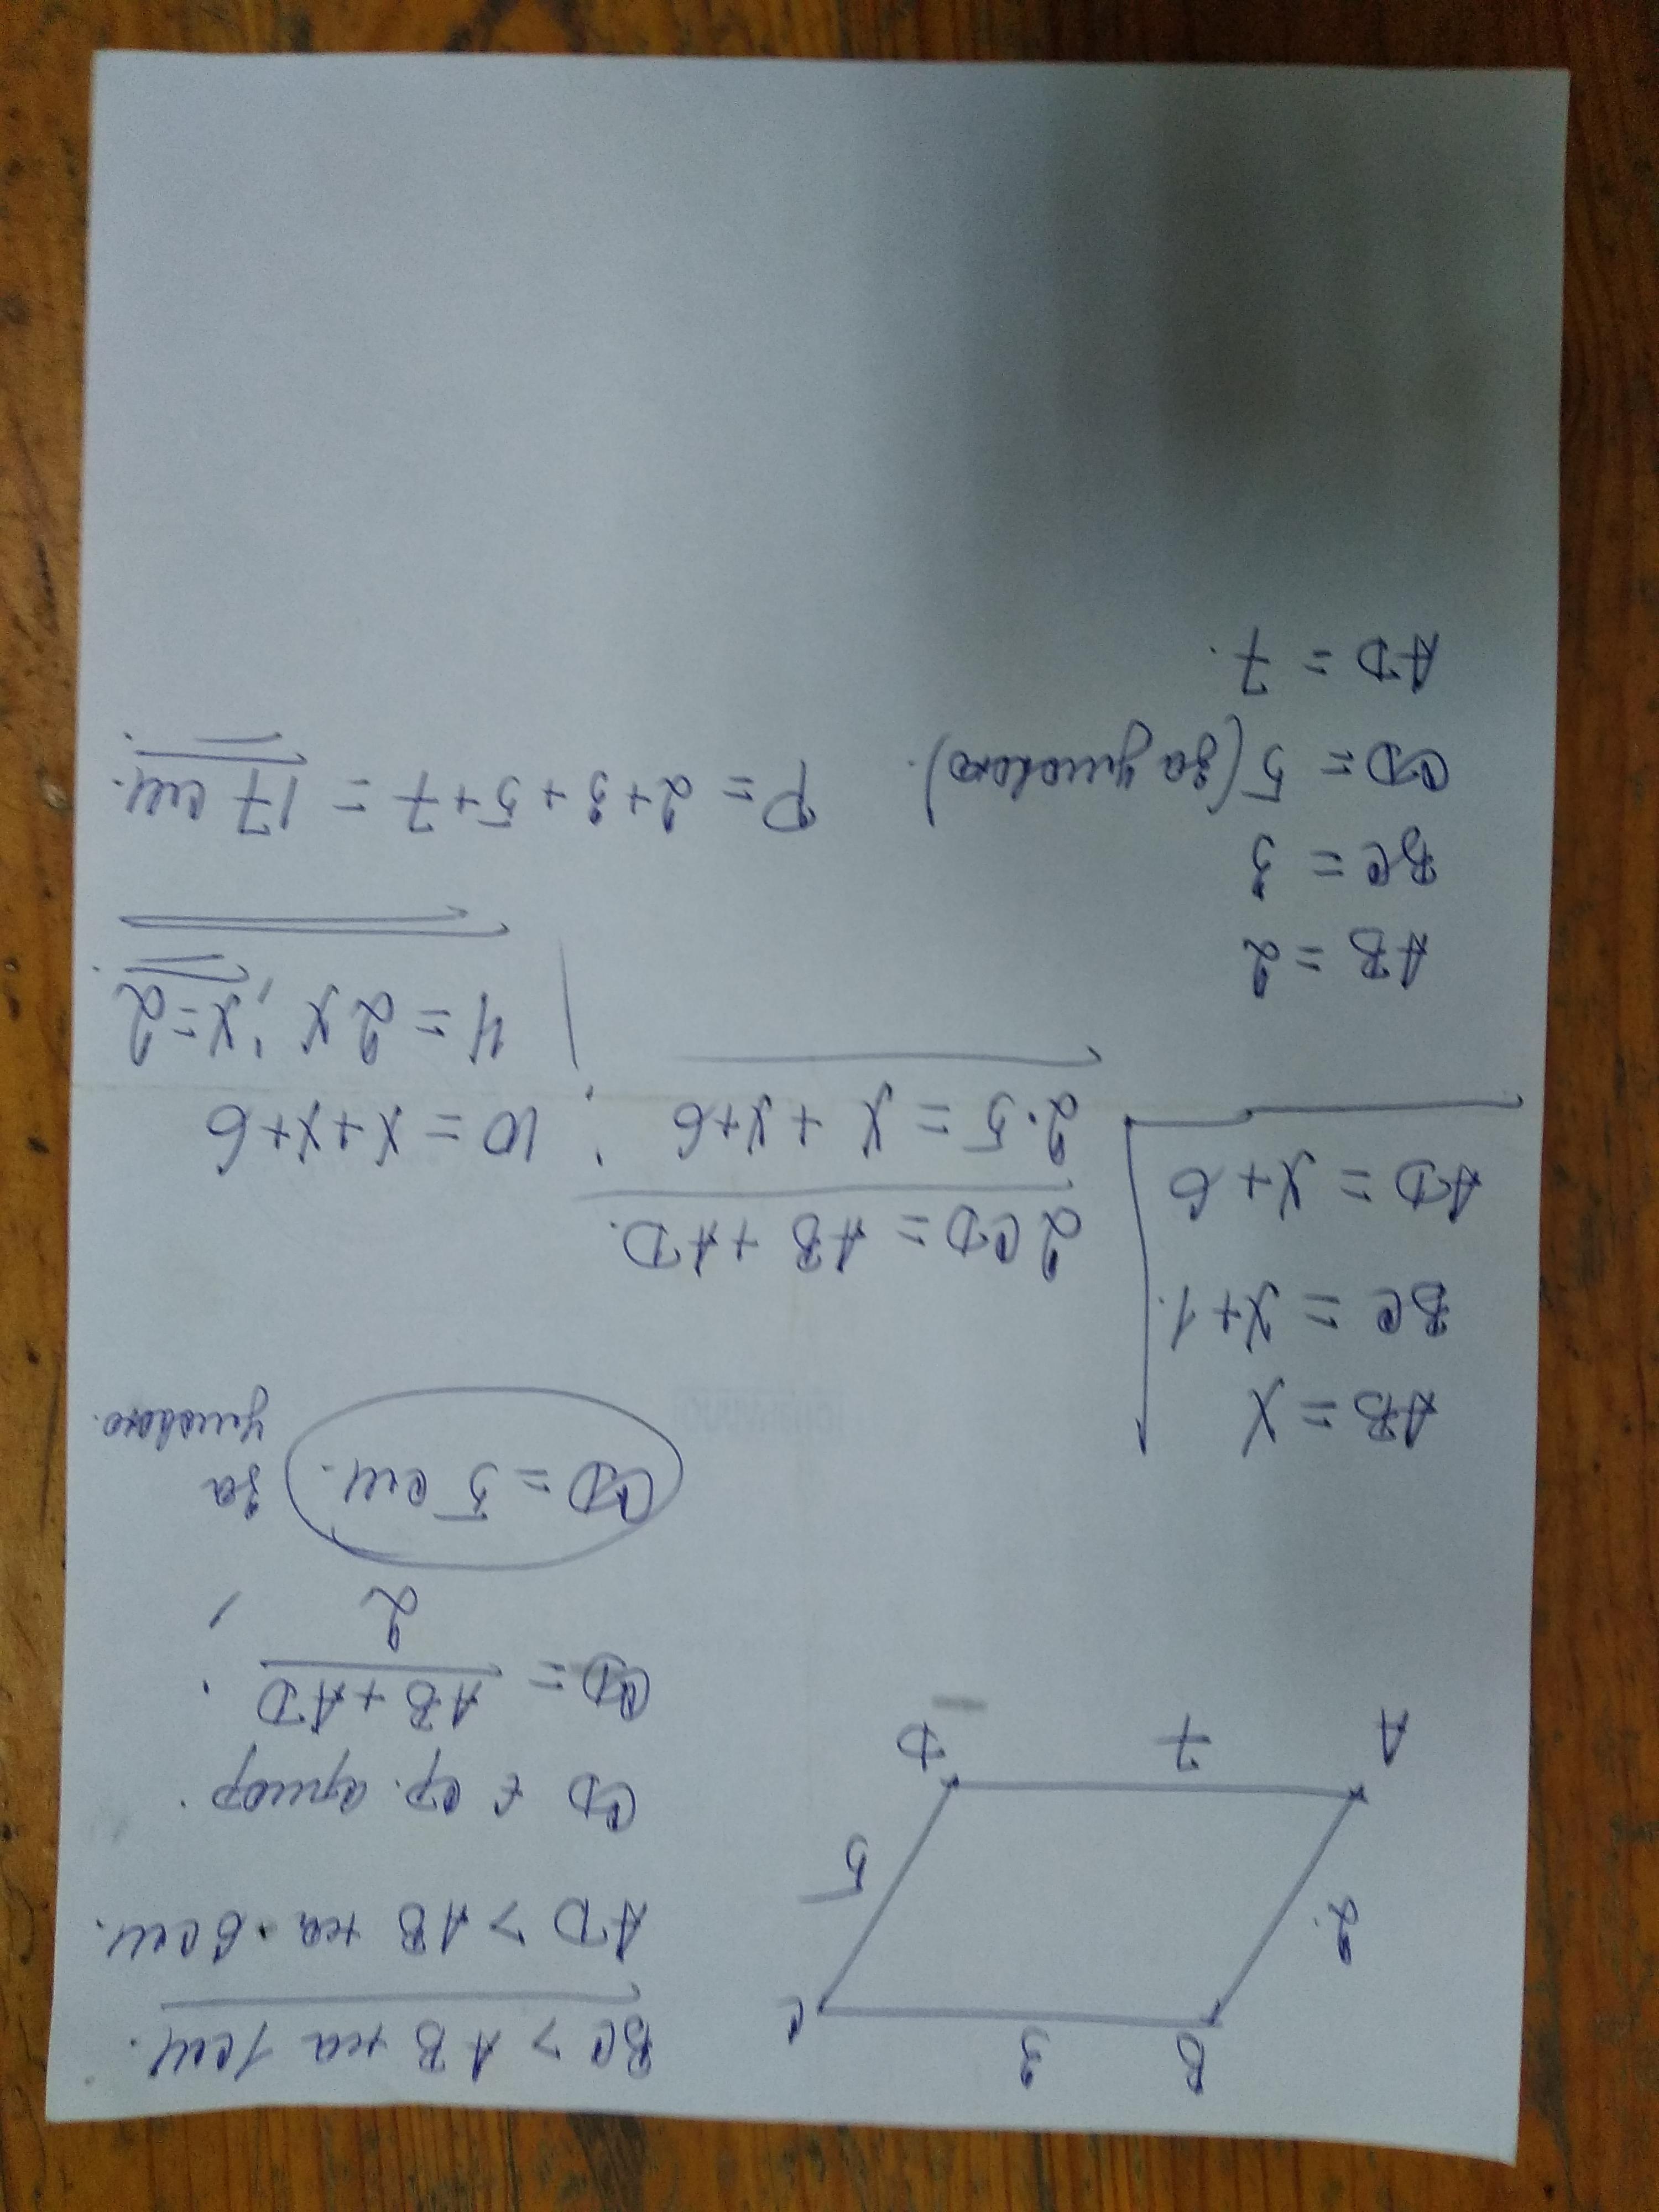 B 3 C
2. 5
A 7 D
BC > AB на 1 см.
AD > AB на 6 см.
CD є ср. арифм.
CD = AB + AD / 2 ,
CD = 5 см. за
умовою.
AB = x
BC = x+1.
AD = x+6
2CD = AB + AD.
2·5 = x + x+6 ; 10 = x+x+6
4 = 2x ; x=2.
AB = 2
BC = 3
CD = 5 (за умовою).
AD = 7.
P = 2+3+5+7 = 17 см.